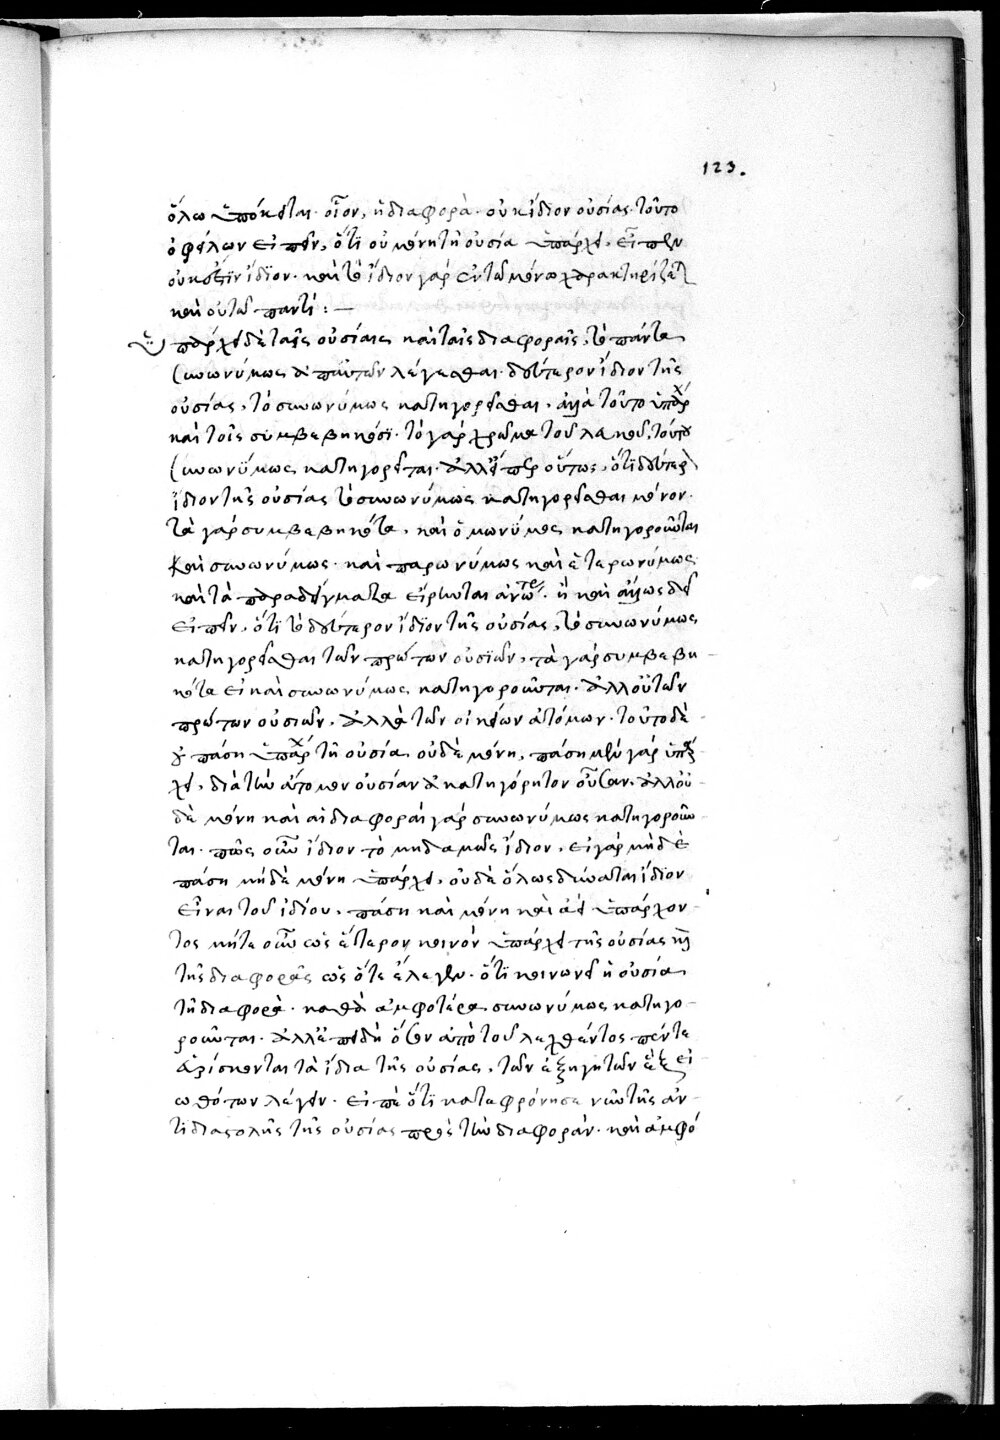 123.
ὅλω ὑπόκειται· οἷον, ἡ διαφορὰ· οὐκ ἴδιον οὐσίας· τοῦτο
ὀφείλων εἰπεῖν, ὅτι οὐ μόνη τῆ οὐσία ὑπάρχει, εἶπεν
οὐκ ἔστϊν ἴδϊον· καὶ τὸ ἴδιον γὰρ ἐν τῶ μόνω χαρακτηρίζεται
καὶ οὐ τῶ παντί:—
ὑπάρχει δὲ ταῖς οὐσίαις καὶ ταῖς διαφοραῖς, τὸ πάντα
συνωνύμως ἀπ' αὐτῶν λέγεσθαι· δεύτερον ἴδιον τῆς
οὐσίας, τὸ συνωνύμως κατηγορεῖσθαι, ἀλλὰ τοῦτο ὑπάρχ
καὶ τοῖς συμβεβηκόσϊ· τὸ γὰρ χρῶμα τοῦ λευκοῦ, τούτου
συνωνύμως κατηγορεῖται· ἀλλ' εἴπερ οὕτως, ὅτι δεύτερον
ἴδιον τῆς οὐσίας τὸ συνωνύμως κατηγορεῖσθαι μόνον·
τὰ γὰρ συμβεβηκότα, καὶ ὁμωνύμως κατηγοροῦνται
καὶ συνωνύμως· καὶ παρωνύμως καὶ ἑτερωνύμως
καὶ τὰ παραδείγματα εἴρηνται ἀνωτε· ἢ καὶ ἄλλως δεῖ
εἰπεῖν, ὅτϊ τὸ δεύτερον ἴδϊον τῆς οὐσίας, τὸ συνωνύμως
κατηγορεῖσθαι τῶν πρώτων οὐσϊῶν, τὰ γὰρ συμβεβη-
κότα εἰ καὶ συνωνύμως κατηγοροῦνται· ἀλλ' οὐ τῶν
πρώτων οὐσιῶν, ἀλλὰ τῶν οἰκείων ἀτόμων· τοῦτο δὲ
οὐ πάση ὑπάρχ τῆ οὐσία οὐδὲ μόνη, πάση μὲν γὰρ ὑπάρ
χει, διὰ τὴν ἄτομον οὐσίαν ἀκατηγόρητον οὖσαν· ἀλλ' οὐ-
δὲ μόνη καὶ αἱ διαφοραὶ γὰρ συνωνύμως κατηγοροῦν-
ται· πῶς οὖν ἴδιον τὸ μηδαμῶς ἴδιον, εἰ γὰρ μηδὲ
πάση μηδὲ μόνη ὑπάρχει, οὐδὲ ὅλως δύναται ἴδιον
εἶναι τοῦ ἰδίου, πάση καὶ μόνη καὶ ἀεὶ ὑπάρχον-
τος μήτε οὖν ὡς ἕτερον κοινὸν ὑπάρχει τῆς οὐσίας καὶ
τῆς διαφορᾶς ὡς ὅτε ἔλεγεν· ὅτϊ κοινωνεῖ ἡ οὐσία
τῆ διαφορὰ· καθὰ ἀμφοτέρα συνωνύμως κατηγο-
ροῦνται· ἀλλ' ἐπειδὴ ὅσον ἀπὸ τοῦ λεχθέντος πέντε
εὑρίσκονται τὰ ἴδια τῆς οὐσίας, τῶν ἐξηγητῶν ἓξ εἰ
ωθότων λέγειν· εἰπὲ ὅτϊ κατεφρόνησε νῦν τῆς ἀν-
τιδιαστολῆς τῆς οὐσίας πρὸς τὴν διαφορὰν· καὶ ἀμφό